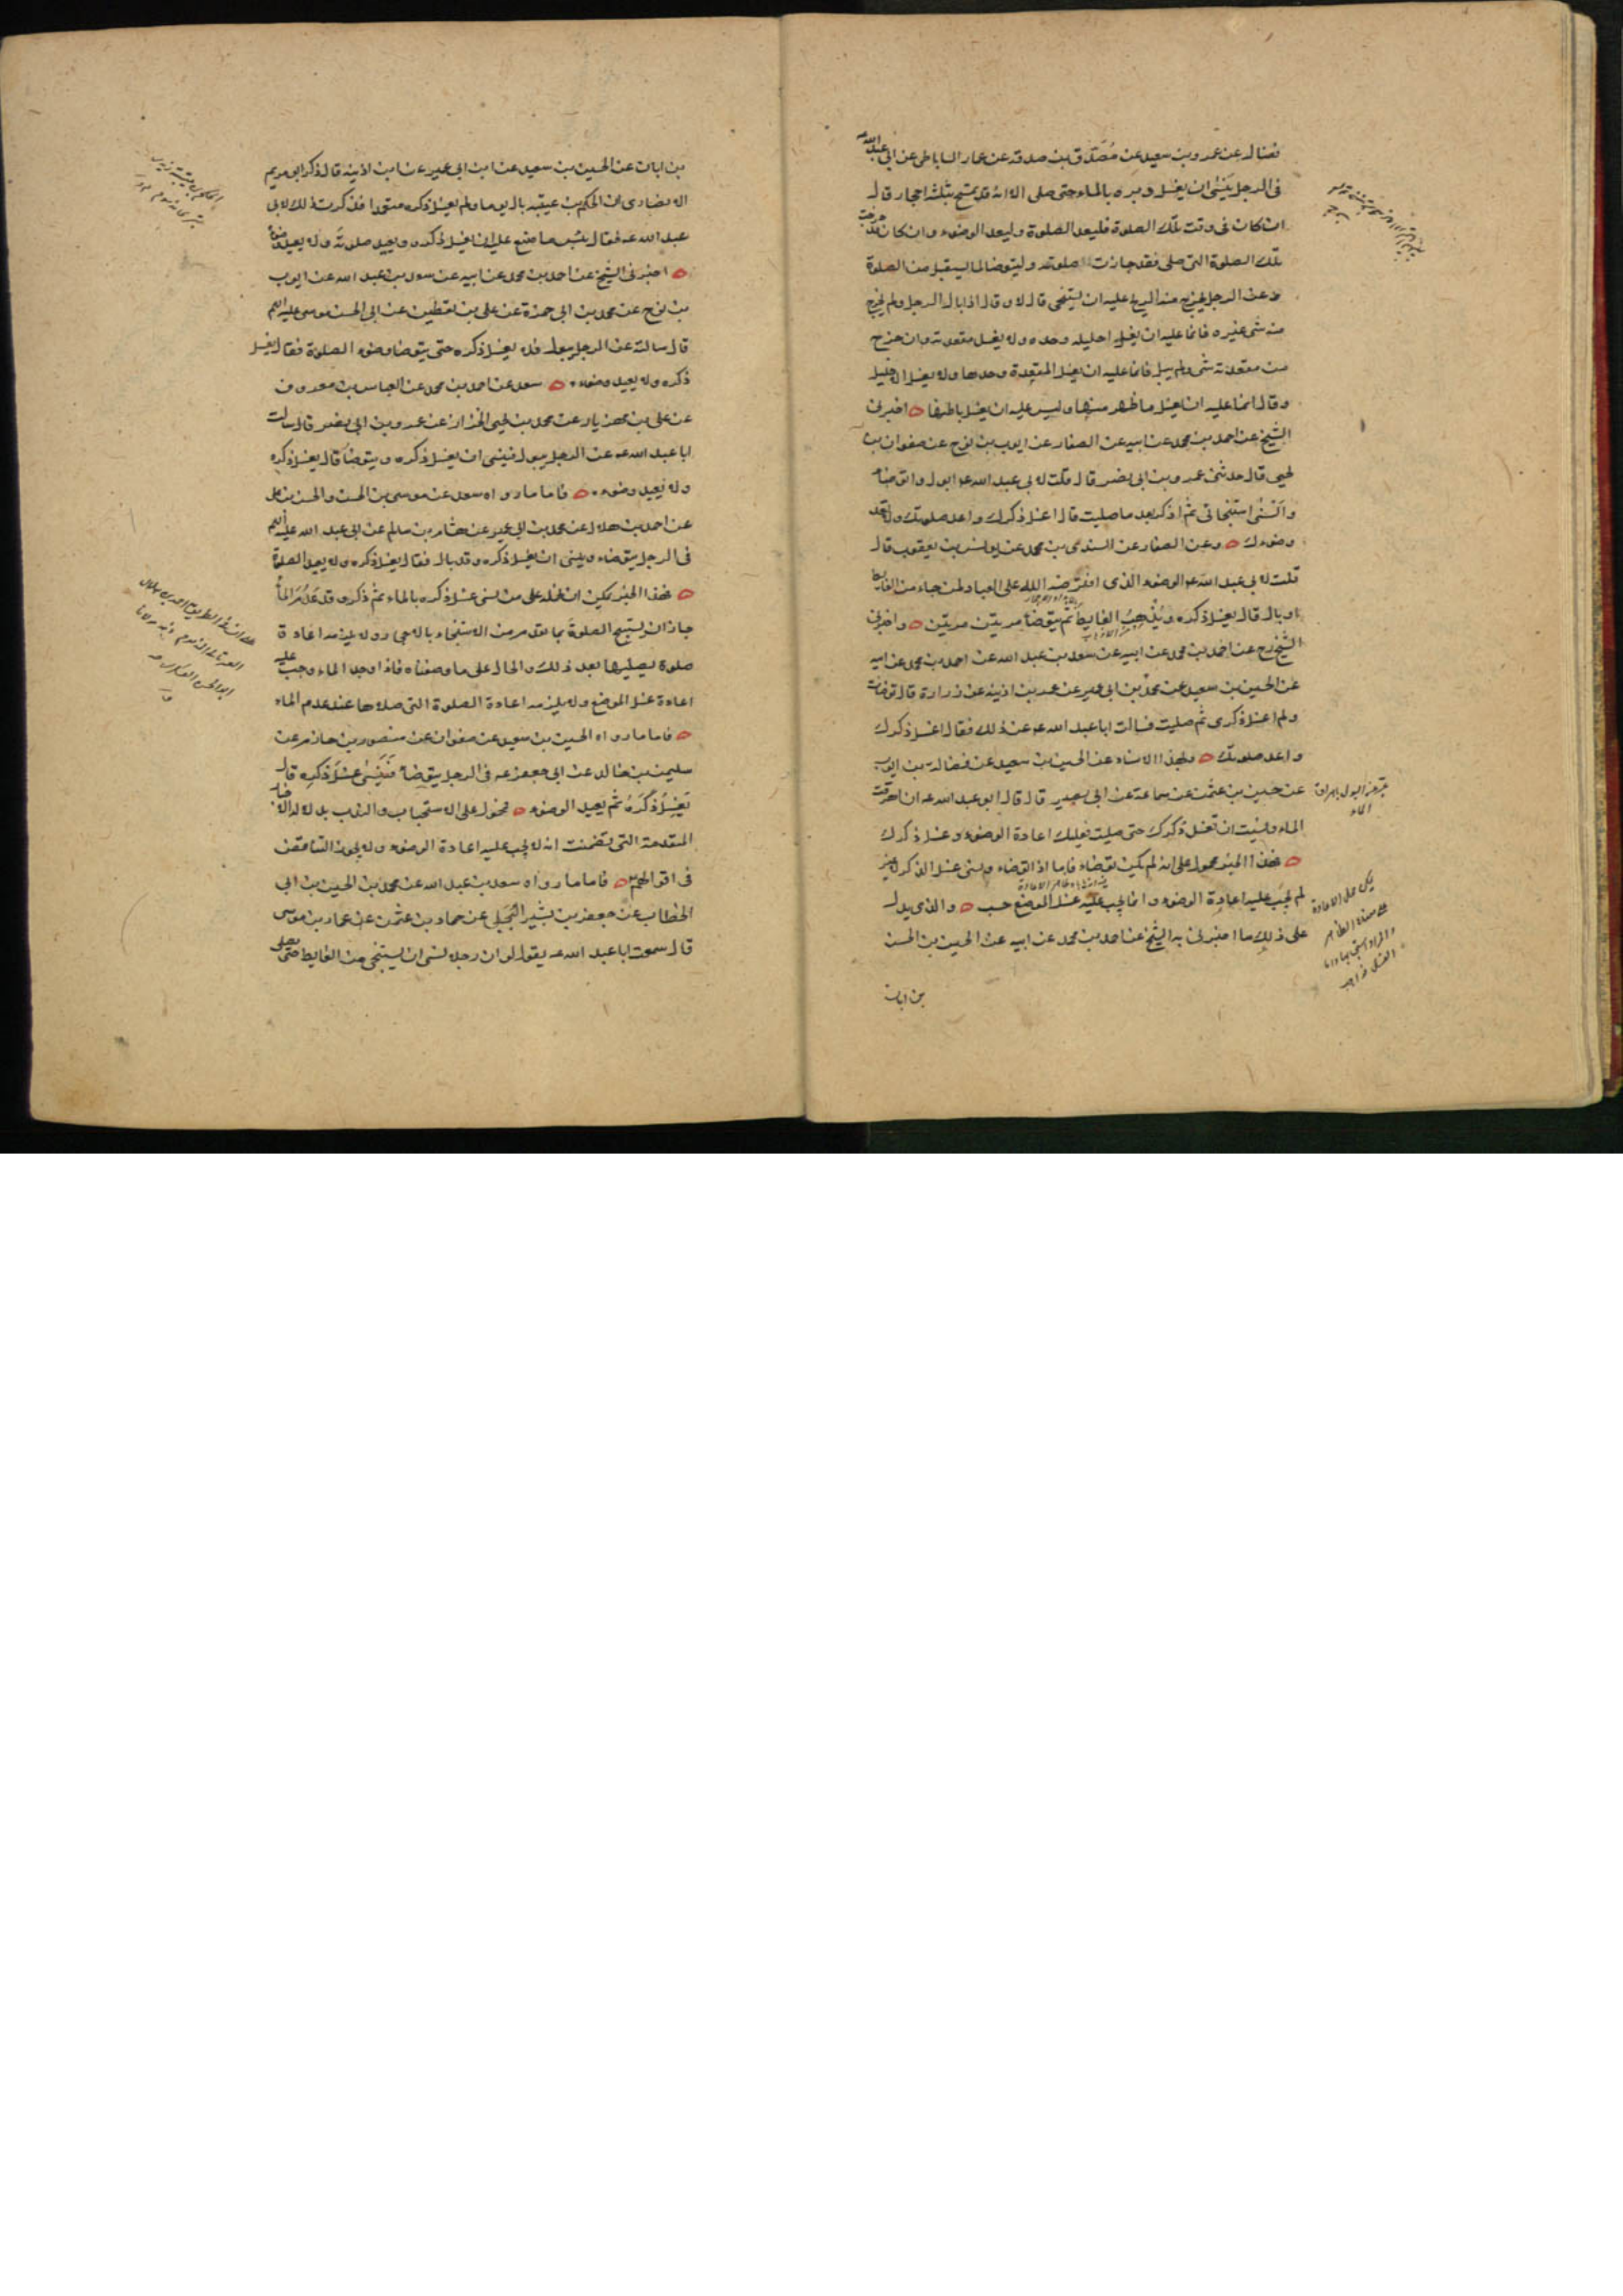 فضال عن عمرو بن سعيد عن مصدق بن صدقه عن عمار الساباطى عن ابى عبدالله
فى الرجل ينسى ان يغسل دبره بالماء حتى صلى الا انه قد تمسح بثلثه احجار قال
ان كان فى وقت تلك الصلوة فليعد الصلوة وليعد الوضوء وان كان قد خرجت
تلك الصلوة التى صلى فقد جازت صلوته وليتوضا لما يستقبل من الصلوة
وعن الرجل يخرج منه الريح عليه ان يستنجى قال لا وقال اذا بال الرجل ولم يخرج
منه شى غيره فانما عليه ان يغسل احليله وحده ولا يغسل مقعدته وان خرج
من مقعدته شى ولم يبل فانما عليه ان يغسل المقعدة وحدها ولا يغسل الاحليل
وقال انما عليه ان يغسل ما ظهر منها وليس عليه ان يغسل باطنها اخبرنى
الشيخ عن احمد بن محمد عن ابيه عن الصفار عن ايوب بن نوح عن صفوان بن
يحيى قال حدثنى عمرو بن ابى نصر قال قلت لابى عبد الله ع ابول واتوضا
وانسى استنجائى ثم اذكر بعد ما صليت قال اغسل ذكرك واعد صلوتك ولا تعد
وضوءك وعن الصفار عن السندى بن محمد عن يونس بن يعقوب قال
قلت لابى عبد الله ع الوضوء الذى افترضه الله على العباد لمن جاء من الغايط
او بال قال يغسل ذكره ويذهب الغايط ثم يتوضا مرتين مرتين واخبرنى
الشيخ رح عن احمد بن محمد عن ابيه عن سعد بن عبد الله عن احمد بن محمد عن ابيه
عن الحسين بن سعيد عن محمد بن ابى عمير عن عمر بن اذينه عن زرارة قال توضات
ولم اغسل ذكرى ثم صليت فسالت ابا عبد الله ع عن ذلك فقال اغسل ذكرك
واعد صلوتك وبهذا الاسناد عن الحسين بن سعيد عن فضالة بن ايوب
عن حسين بن عثمن عن سماعة عن ابى بصير قال قال ابو عبد الله ع ان اهرقت
الماء ونسيت ان تغسل ذكرك حتى صليت فعليك اعادة الوضوء وغسل ذكرك
فهذا الخبر محمول على انه لم يكن توضاء فاما اذا توضاء ونسى غسل الذكر لا غير
لم يجب عليه اعادة الوضوء وانما يجب عليه غسل الموضع حسب والذى يدل
على ذلك ما اخبرنى به الشيخ عن احمد بن محمد عن ابيه عن الحسين بن الحسن
بن ابان
عبر عن البول باهراق
الماء
بن ابان عن الحسين بن سعيد عن ابن ابى عمير عن ابن اذينه قال ذكر ابو مريم
الانصارى ان الحكم بن عتيبه بال يوما ولم يغسل ذكره متعمدا فذكرت ذلك لابى
عبد الله ع فقال بئس ما صنع عليه ان يغسل ذكره ويعيد صلوته ولا يعيد وضوءه
اخبرنى الشيخ عن احمد بن محمد عن ابيه عن سعد بن عبد الله عن ايوب
بن نوح عن محمد بن ابى حمزة عن على بن يقطين عن ابى الحسن موسى عليه السلم
قال سالته عن الرجل يبول فلا يغسل ذكره حتى يتوضا وضوء الصلوة فقال يغسل
ذكره ولا يعيد وضوءه سعد عن احمد بن محمد عن العباس بن معروف
عن على بن مهزيار عن محمد بن يحيى الخزاز عن عمرو بن ابى نصر قال سالت
ابا عبد الله ع عن الرجل يبول فينسى ان يغسل ذكره ويتوضا قال يغسل ذكره
ولا يعيد وضوءه فاما ما رواه سعد عن موسى بن الحسن والحسن بن على
عن احمد بن هلال عن محمد بن ابى عمير عن هشام بن سالم عن ابى عبد الله عليه السلم
فى الرجل يتوضاء وينسى ان يغسل ذكره وقد بال فقال يغسل ذكره ولا يعيد الصلوة
فهذا الخبر يمكن ان نحمله على من نسى غسل ذكره بالماء ثم ذكره وقد عدم الماء
جاز ان يستبيح الصلوة بما تقدم من الاستنجاء بالاحجار ولا يلزمه اعادة
صلوة يصليها بعد ذلك والحال على ما وصفناه فاذا وجد الماء وجب عليه
اعادة غسل الموضع ولا يلزمه اعادة الصلوة التى صلاها عند عدم الماء
فاما ما رواه الحسين بن سعيد عن صفوان عن منصور بن حازم عن
سليمن بن خالد عن ابى جعفر ع فى الرجل يتوضا فينسى غسل ذكره قال
يغسل ذكره ثم يعيد الوضوء فمحمول على الاستحباب والندب بدلالة الاخبار
المتقدمة التى تضمنت انه لا يجب عليه اعادة الوضوء ولا يجوز التناقض
فى اقوالهم فاما ما رواه سعد بن عبد الله عن محمد بن الحسين بن ابى
الخطاب عن جعفر بن بشير البجلى عن حماد بن عثمن عن عمار بن موسى
قال سمعت ابا عبد الله ع يقول لو ان رجلا نسى ان يستنجى من الغايط حتى يصلى